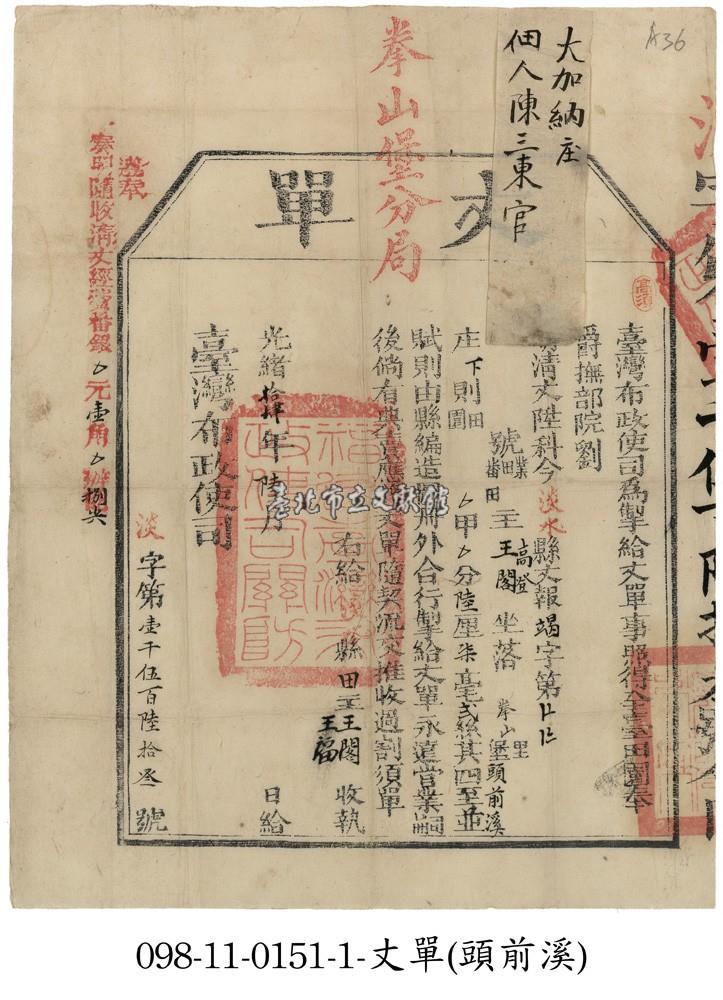 A36
大加納庄
佃人陳三東官
拳山堡分局
丈單
臺灣布政使司為掣給丈單事照得全臺田園奉
爵撫部院劉
清丈陞科今淡水縣丈報竭字第
號
番田
主
高登
王閣
坐落
拳山
里
堡
頭前溪
庄下則田
園
甲
分陸厘柒毫弍絲其四至並
賦則由縣編造
冊外合行掣給丈單永遠管業嗣
後倘有典賣應
丈單隨契流交推收過割須單
右給
縣田主
王閣
王福
收執
光緒拾肆年陸月
日給
臺灣布政使司
淡字第壹千伍百陸拾叁號
遵奉
奏明隨收清丈經費番銀
元壹角
辦
捌尖
臺北市立文獻館
098-11-0151-1-丈單(頭前溪)